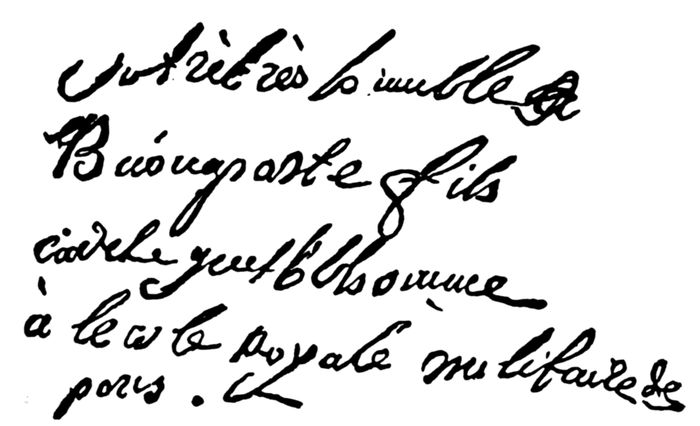 votrètrès humble &
Buonaparte fils
cadete gentilshomme
à lecole royale militaire de
paris.